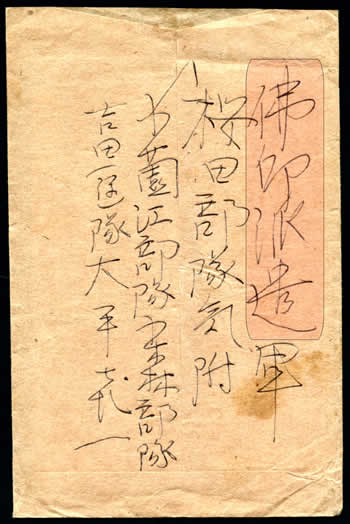 佛印派遣軍
桜田部隊気附
小薗江部隊宗森部隊
吉田隊大平喜一